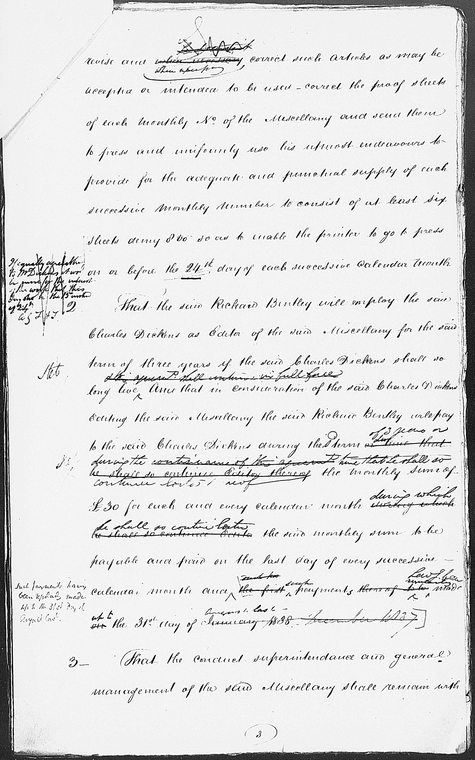 revise and when necessary correct such articles as may be
when necessary
accepted or intended to be used - correct the proof sheets
of each Monthly No. of the Miscellany and send them
to press and uniformly use his utmost endeavours to
provide for the adequate and punctual supply of each
successive Monthly Number to consist of at least six
sheets demy 8vo so as to enable the printer to go to press
on or before the 24th day of each successive Calendar Month
That the said Richard Bentley will employ the said
Charles Dickens as Editor of the said Miscellany for the said
term of three years if the said Charles Dickens shall so
this agreemt shall continue in full force
long live And that in consideration of the said Charles Dickens
Editing the said Miscellany the said Richard Bentley will pay
to the said Charles Dickens during the term
of 3 years or
during the continuance of this agreement
he shall so continue Editor thereof the monthly sum of
£30 for each and every calendar month during which
he shall so continue Editor
the said monthly sum to be
payable and paid on the last day of every successive
calendar month and the first such payments made
up to
the 31st day of January 1838 December 1837
August last
such payments having
been regularly made
up to the 31st day of
August last
3- That the conduct superintendance and general
management of the said Miscellany shall remain with
3